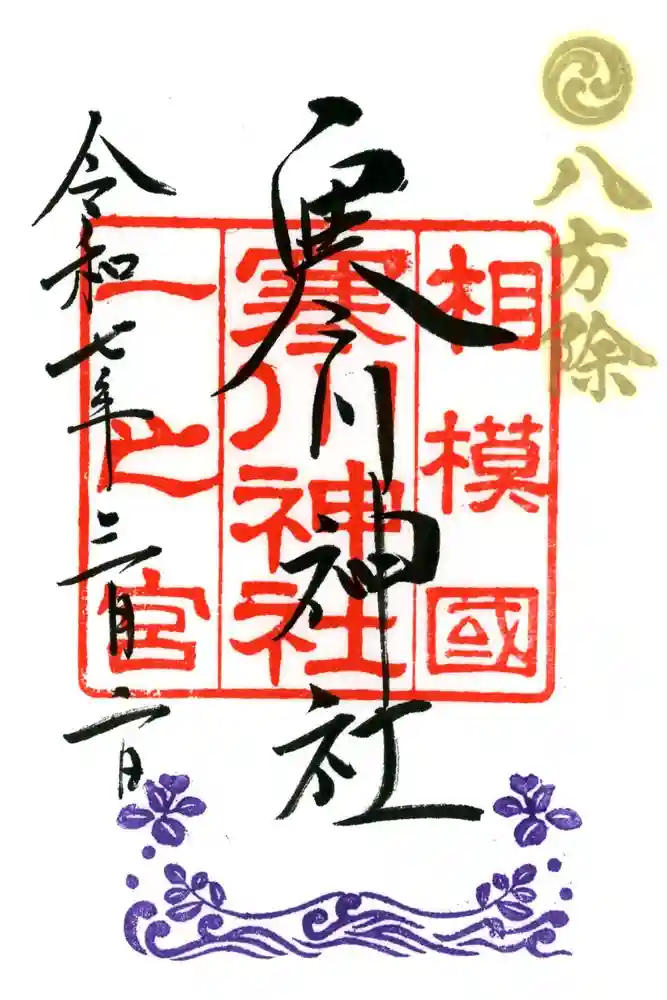 八方除
相模國
寒川神社
一之宮
寒川神社
令和七年三月二日